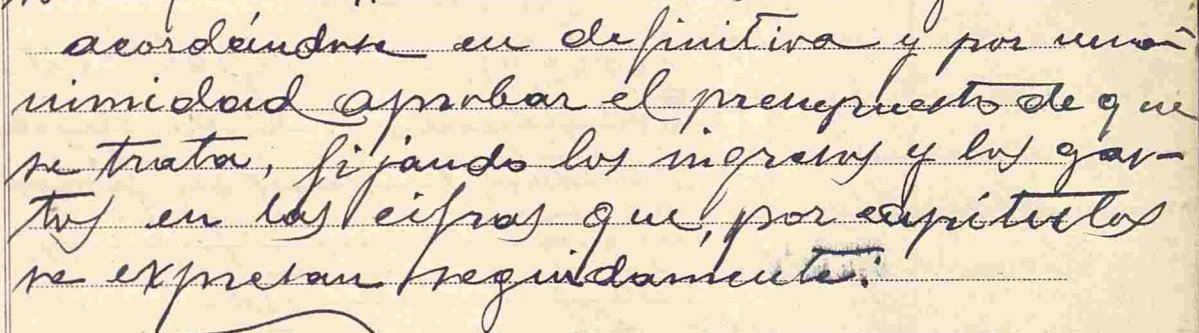 acordándose en definitiva y por una-
nimidad aprobar el presupuesto de que
se trata, fijando los ingresos y los gas-
tos en las cifras que, por capítulos
se expresan seguidamente: